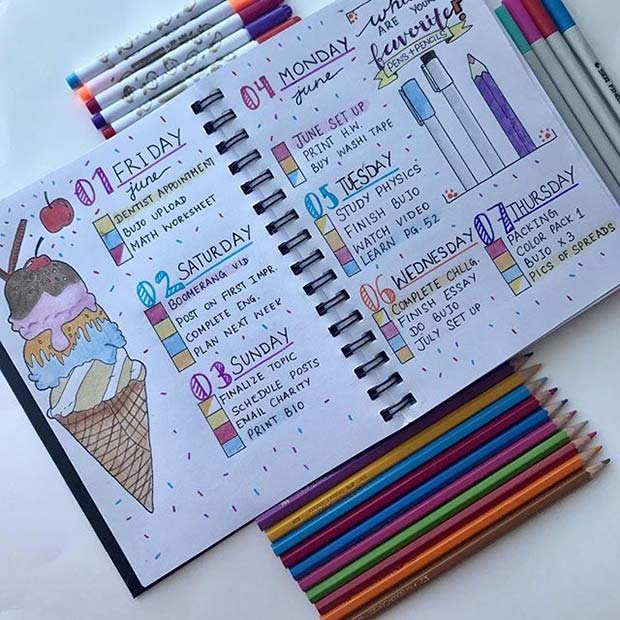 01 FRIDAY
june
DENTIST APPOINTMENT
BUJO UPLOAD
MATH WORKSHEET
02 SATURDAY
BOOMERANG VID
POST ON FIRST IMPR.
COMPLETE ENG.
PLAN NEXT WEEK
03 SUNDAY
FINALIZE TOPIC
SCHEDULE POSTS
EMAIL CHARITY
PRINT BIO
04 MONDAY
june
JUNE SET UP
PRINT H.W.
BUY WASHI TAPE
05 TUESDAY
STUDY PHYSICS
FINISH BUJO
WATCH VIDEO
LEARN PG. 52
06 WEDNESDAY
COMPLETE CHLLG.
FINISH ESSAY
DO BUJO
JULY SET UP
what
ARE YOUR
favorite
PENS+PENCILS
?
07 THURSDAY
PACKING
COLOR PACK 1
BUJO X 3
PICS OF SPREADS